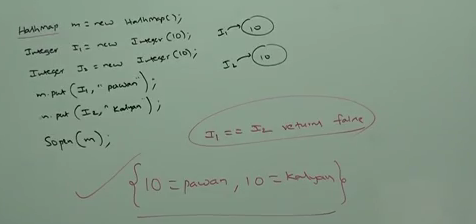 HashMap m = new HashMap();
Integer I1 = new Integer(10);
Integer I2 = new Integer(10);
m.put(I1, "pawan");
m.put(I2, "Kalyan");
Sopln(m);
I1 → 10
I2 → 10
I1 == I2 returns false
{10 = pawan, 10 = Kalyan}